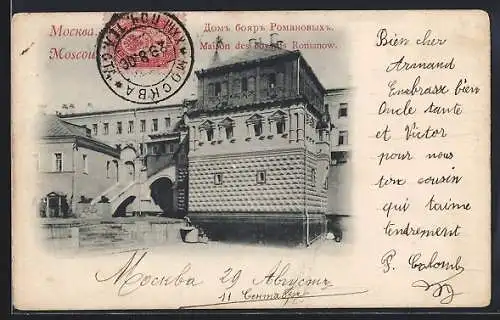 Москва.
Moscou
Домъ бояръ Романовыхъ.
Maison des boyards Romanow.
МОСКВА
Bien cher
Armand
Embrasse bien
Oncle tante
et Victor
pour nous
ton cousin
qui t'aime
tendrement
P. Colomb
Москва 29 Августъ
11 Сентябрь